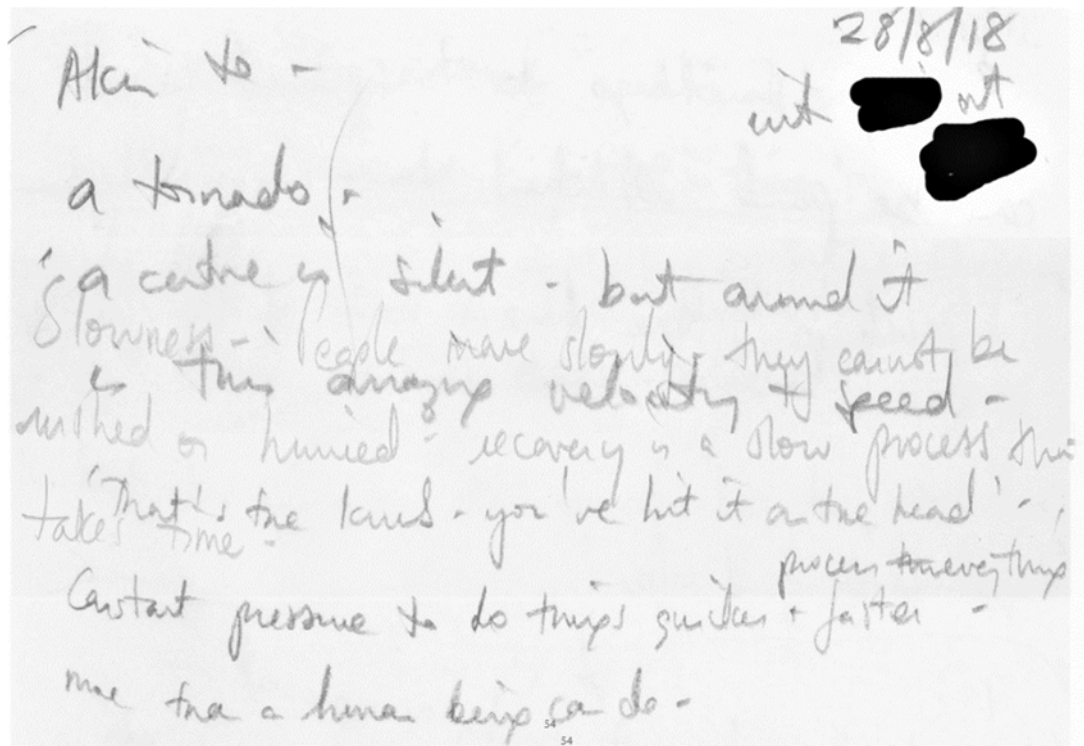 28/8/18
Akin to -
a tornado.
a centre is silent - but around it
Slowness - People move slowly - they cannot be
is this amazing velocity & speed -
rushed or hurried - recovery is a slow process
"That's the - you've hit it on the head" -
takes time -
process everything
Constant pressure to do things quicker + faster -
more than a human being can do -
54
54